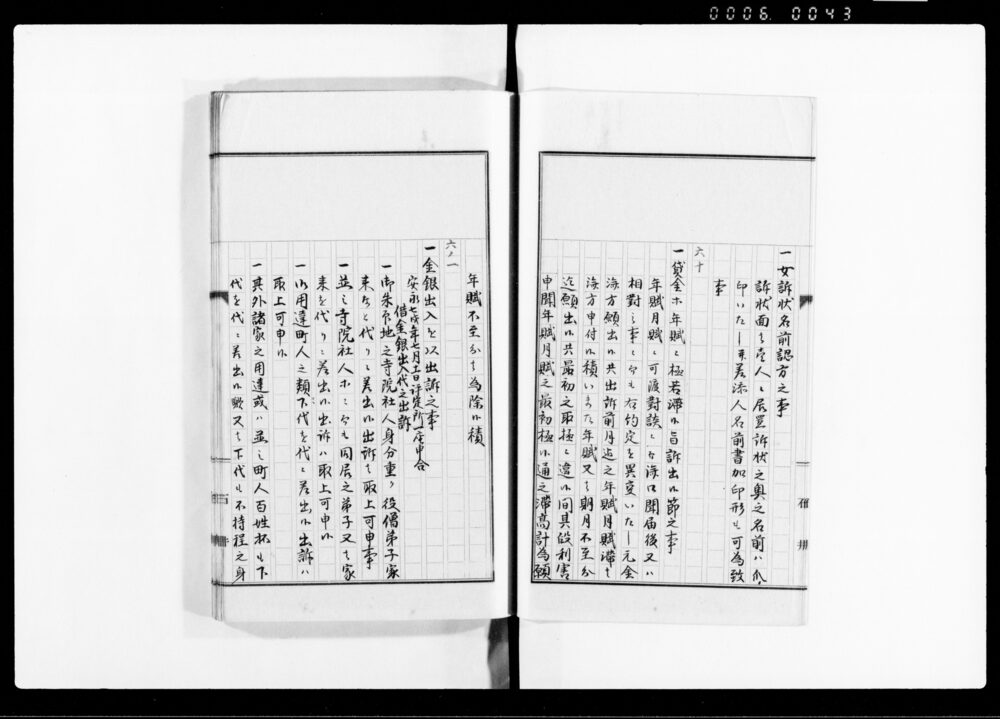 0006. 0043
一 女訴状名前認方之事
訴状面ニ者壱人ニ居置訴状之奥之名前ハ爪
印いたし差添人名前書加印形も可為致
事
六十
一 貸金ホ年賦ニ極若滞候旨訴出候節之事
年賦月賦ニ可渡対談ニ
相対之事ニ候而も右約定を異変いたし元金
済方願出候共出訴前月迄之年賦月賦滞
済方申付候積いまた年賦又者期月不至分
迄願出候共最初之取極ニ違候間具段利害
申聞年賦月賦之最初極候通之滞高計為願
年賦不至分者為除候積
六ノ一
一 金銀出入を以出訴之事
安永七戌年七月十二日評定所一座申合
借金銀出入代之出訴
一 御朱印地之寺院社人身分重ク役僧弟子家
来ホを代りニ差出候出訴者取上可申事
一 並之寺院社人ホニ而も同居之弟子又者家
来を代りニ差出候出訴ハ取上可申候
一 御用達町人之類下代を代ニ差出候出訴ハ
取上可申候
一 其外諸家之用達或ハ並之町人百姓杯も下
代を代ニ差出候歟又者下代も不持程之身